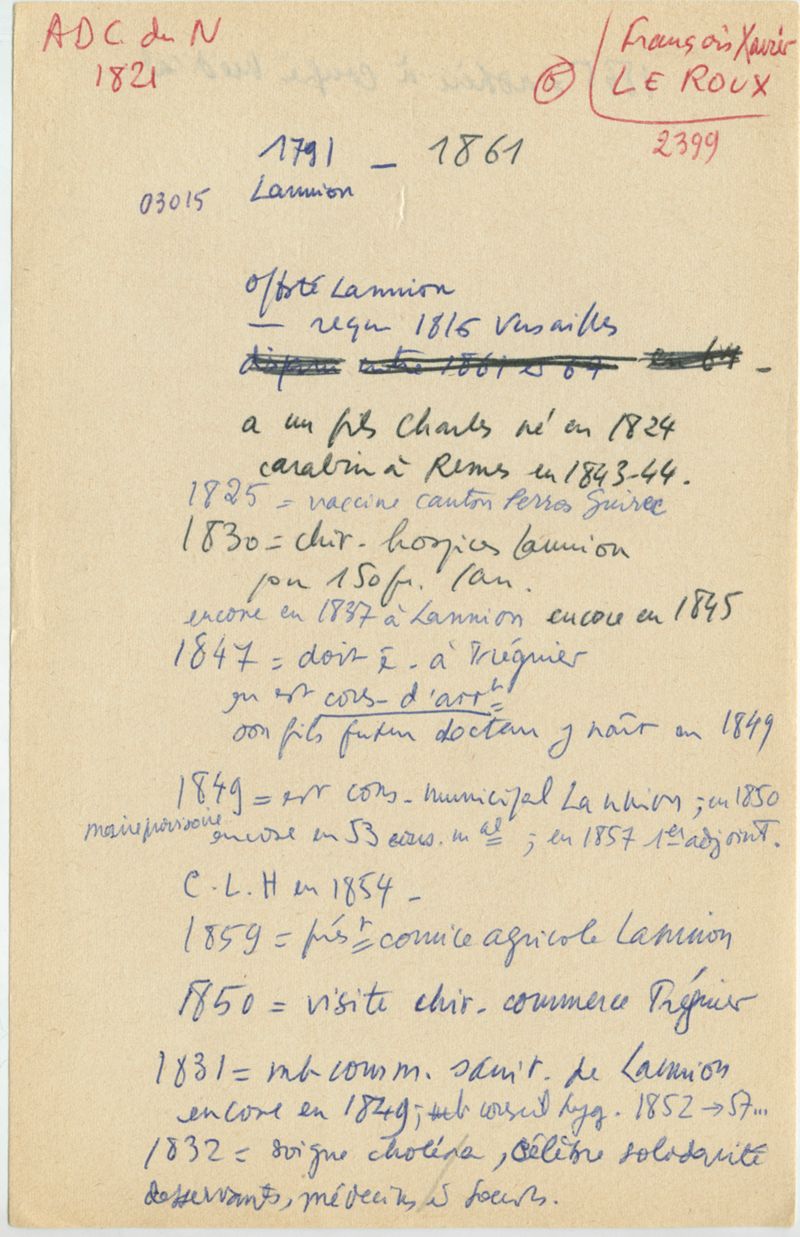 A D C. du N
1821
François Xavier
LE ROUX
2399
1791 – 1861
03015 Lannion
offté Lannion
— reçu 1816 Versailles
disparu entre 1861 et 64 en 64 –
a un fils Charles né en 1824
carabin à Rennes en 1843-44.
1825 = vaccine canton Perros Guirec
1830 = chir. hospices Lannion
pour 150 fr. /an.
encore en 1837 à Lannion encore en 1845
1847 = doit ê. à Tréguier
en est cons- d'arrt
son fils futur docteur y naît en 1849
1849 = est cons. municipal Lannion ; en 1850
maire provisoire encore en 53 cons. m al ; en 1857 1er adjoint.
C. L. H en 1854 –
1859 = prést comice agricole Lannion
1850 = visite chir. commerce Tréguier
1831 = mb comm. sanit. de Lannion
encore en 1849 ; mb conseil hyg. 1852 → 57...
1832 = soigne choléra, célèbre solidarité
desservants, médecins et soeurs.